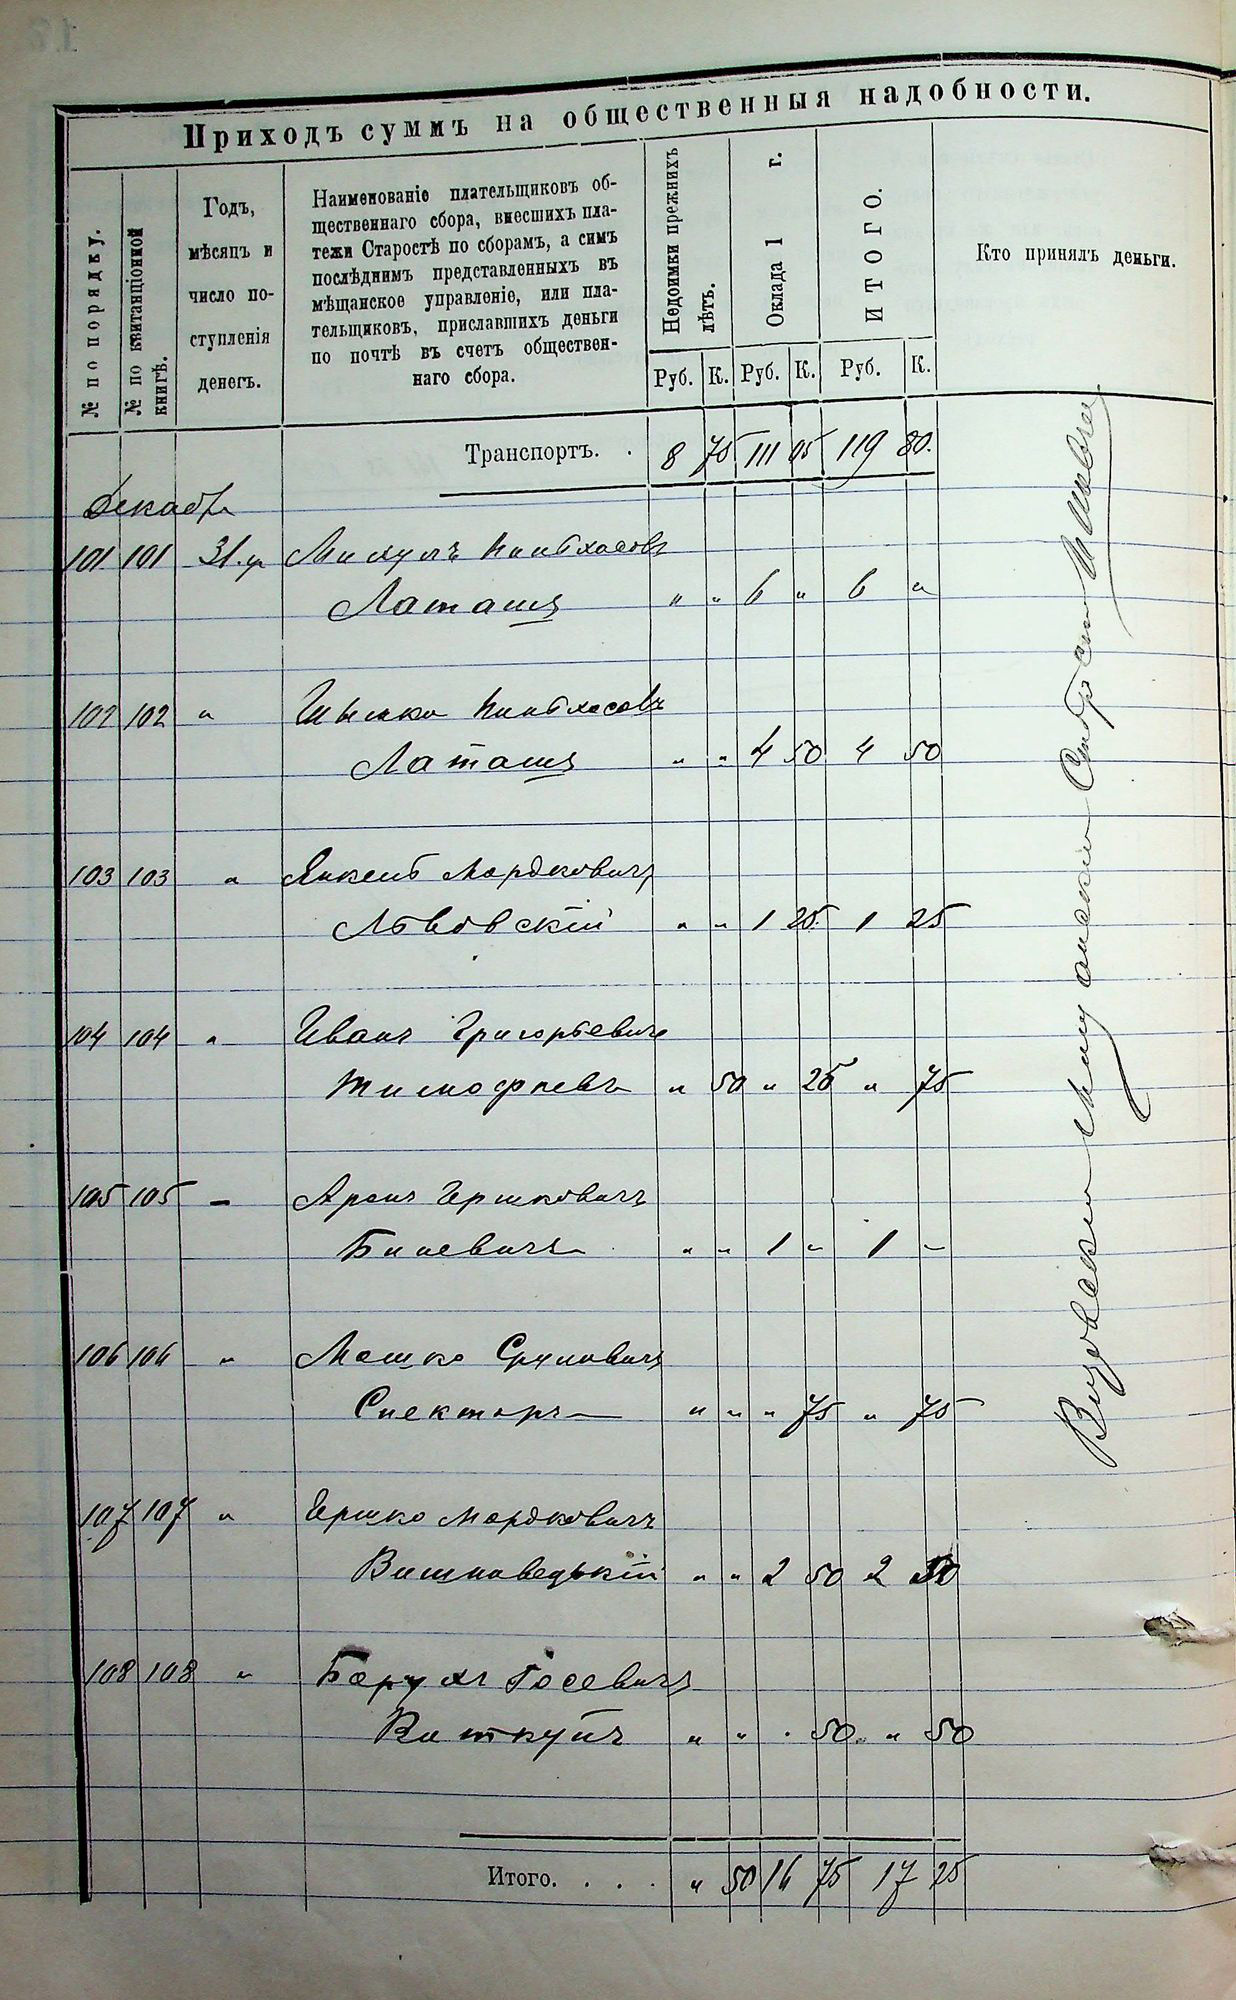 Приходъ суммъ на общественныя надобности.
№ по порядку.
№ по квитанціонной книгѣ.
Годъ,
мѣсяцъ и
число по-
ступленія
денегъ.
Наименованіе плательщиковъ об-
щественнаго сбора, внесшихъ пла-
тежи Старостѣ по сборамъ, а симъ
послѣднимъ представленныхъ въ
мѣщанское управленіе, или пла-
тельщиковъ, приславшихъ деньги
по почтѣ въ счетъ обществен-
наго сбора.
Недоимки прежнихъ
лѣтъ.
Оклада 1 г.
ИТОГО.
Кто принялъ деньги.
Руб. К. Руб. К. Руб. К.
Транспортъ. . 8 75 111 05 119 80.
Декабр
101 101 31 Пинхасовъ
Латашъ " " 6 " 6 "
102 102 " Шымко Пинхасовъ
Латашъ " " 4 50 4 50
103 103 " Янкель Мордковичъ
Львовскій " " 1 25 1 25
104 104 " Иванъ Григорьевичъ
Тимофѣевъ " 50 " 25 " 75
105 105 — Аронъ Гершковичъ
Биневичъ " " 1 " 1 "
106 106 " Мошко Срулевичъ
Спекторъ " " " 75 " 75
107 107 " Гершко Мордковичъ
Вишневецькій " " 2 50 2 50
108 108 " Борухъ Іосевичъ
Виткунъ " " . 50 " 50
Итого. . . . " 50 16 75 17 25